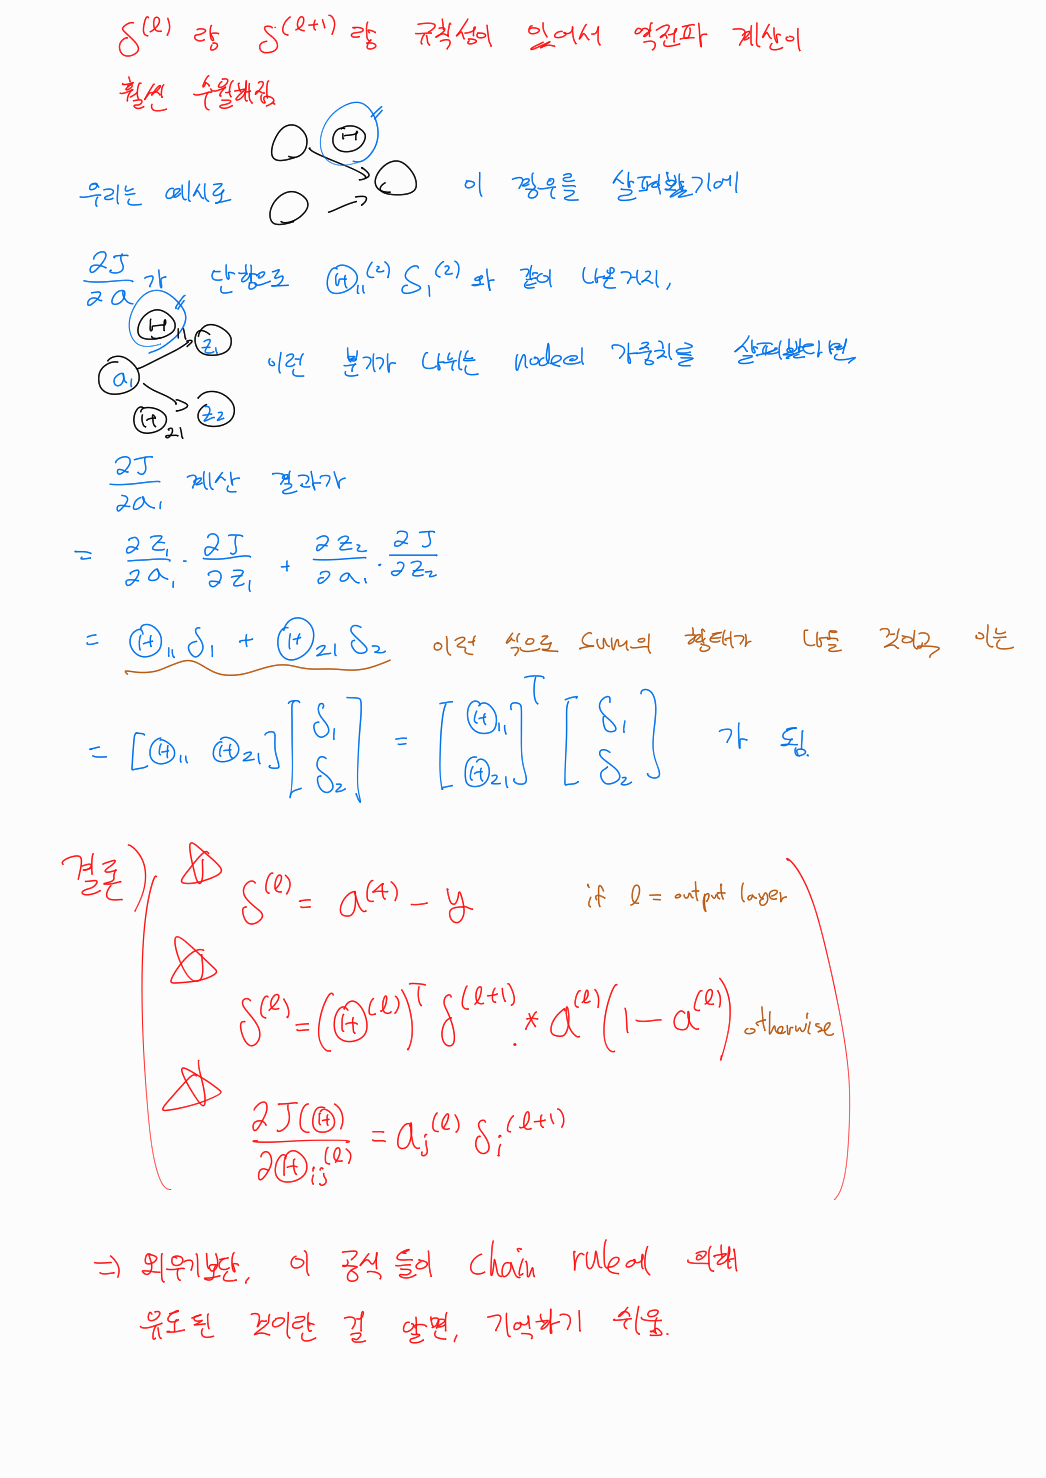 δ^(l) 랑 δ^(l+1) 랑 규칙성이 있어서 역전파 계산이
훨씬 수월해짐
Θ
우리는 예시로 이 경우를 살펴봤기에
∂J/∂a 가 단항으로 Θ₁₁^(2) δ₁^(2) 와 같이 나온거지,
Θ₁₁ z₁
a₁ 이런 분기가 나뉘는 node의 가중치를 살펴본다면,
Θ₂₁ z₂
∂J/∂a₁ 계산 결과가
= ∂z₁/∂a₁ · ∂J/∂z₁ + ∂z₂/∂a₁ · ∂J/∂z₂
= Θ₁₁ δ₁ + Θ₂₁ δ₂ 이런 식으로 sum의 형태가 나올 것이고, 이는
= [Θ₁₁ Θ₂₁] [δ₁ δ₂] = [Θ₁₁ Θ₂₁]^T [δ₁ δ₂] 가 됨.
결론)
δ^(l) = a^(4) - y if l = output layer
δ^(l) = (Θ^(l))^T δ^(l+1) .* a^(l) (1 - a^(l)) otherwise
∂J(Θ)/∂Θ_ij^(l) = a_j^(l) δ_i^(l+1)
⇒ 외우기보단, 이 공식들이 chain rule에 의해
유도된 것이란 걸 알면, 기억하기 쉬움.